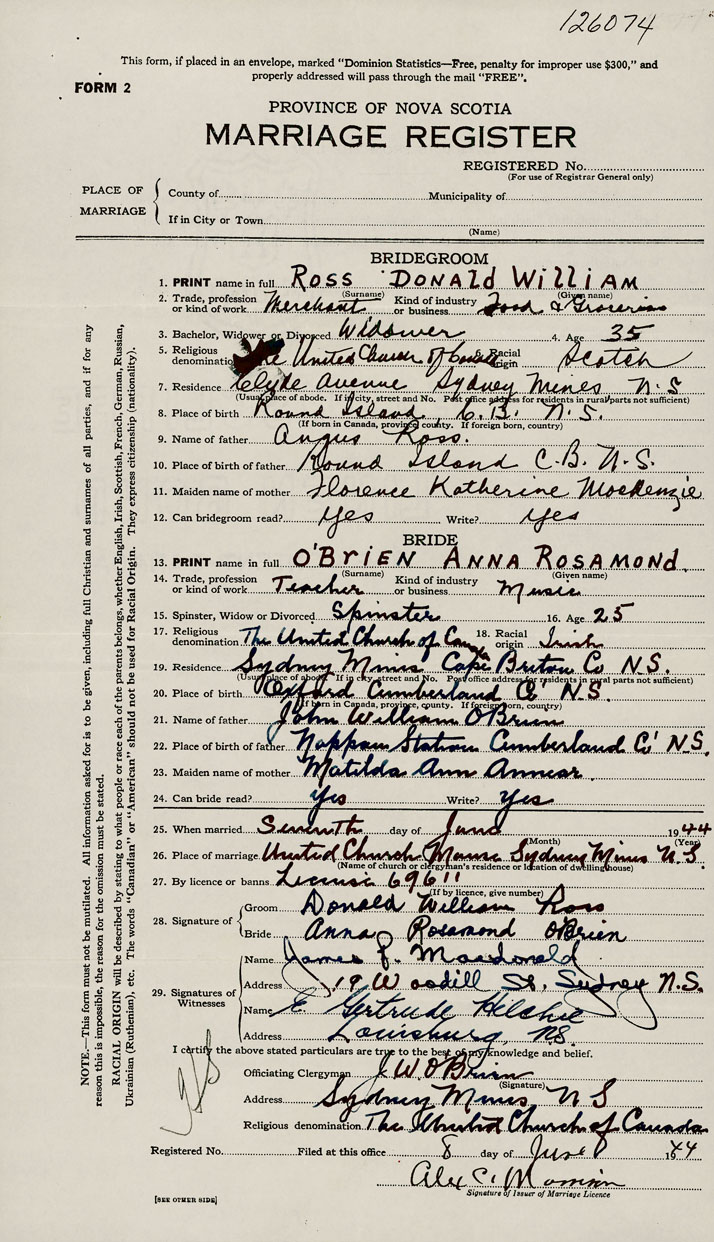 126074
This form, if placed in an envelope, marked "Dominion Statistics—Free, penalty for improper use $300," and
properly addressed will pass through the mail "FREE".
FORM 2
PROVINCE OF NOVA SCOTIA
MARRIAGE REGISTER
REGISTERED No.
(For use of Registrar General only)
PLACE OF MARRIAGE
County of Municipality of
If in City or Town
(Name)
BRIDEGROOM
1. PRINT name in full ROSS DONALD WILLIAM
(Surname) (Given name)
2. Trade, profession or kind of work Merchant Kind of industry or business Food & Groceries
3. Bachelor, Widower or Divorced Widower 4. Age 35
5. Religious denomination The United Church of Canada 6. Racial origin Scotch
7. Residence Clyde Avenue Sydney Mines N.S
(Usual place of abode. If in city, street and No. Post office address for residents in rural parts not sufficient)
8. Place of birth Round Island C.B. N.S.
(If born in Canada, province, county. If foreign born, country)
9. Name of father Angus Ross.
10. Place of birth of father Round Island C.B. N.S.
11. Maiden name of mother Florence Katherine MacKenzie
12. Can bridegroom read? Yes Write? Yes
BRIDE
13. PRINT name in full O'BRIEN ANNA ROSAMOND.
(Surname) (Given name)
14. Trade, profession or kind of work Teacher Kind of industry or business Music
15. Spinster, Widow or Divorced Spinster 16. Age 25
17. Religious denomination The United Church of Can 18. Racial origin Irish
19. Residence Sydney Mines Cape Breton Co N.S.
(Usual place of abode. If in city, street and No. Post office address for residents in rural parts not sufficient)
20. Place of birth Oxford Cumberland Co' N.S.
(If born in Canada, province, county. If foreign born, country)
21. Name of father John William O'Brien
22. Place of birth of father Nappan Station Cumberland Co' N.S.
23. Maiden name of mother Matilda Ann Annear.
24. Can bride read? Yes Write? Yes
25. When married Seventh day of June 1944
(Month) (Year)
26. Place of marriage United Church Manse Sydney Mines N.S.
(Name of church or clergyman's residence or location of dwelling house)
27. By licence or banns License 69611
(If by licence, give number)
28. Signature of
Groom Donald William Ross
Bride Anna Rosamond O'Brien
29. Signatures of Witnesses
Name James P. Macdonald
Address 19 Woodill St. Sydney N.S.
Name E. Gertrude Helchie
Address Louisburg, N.S.
I certify the above stated particulars are true to the best of my knowledge and belief.
Officiating Clergyman J. W. O'Brien
(Signature)
Address Sydney Mines N S
Religious denomination The United Church of Canada
Registered No. Filed at this office 8 day of June 1944
Alex C. Morrison
Signature of Issuer of Marriage Licence
[SEE OTHER SIDE]
NOTE.—This form must not be mutilated. All information asked for is to be given, including full Christian and surnames of all parties, and if for any
reason this is impossible, the reason for the omission must be stated.
RACIAL ORIGIN will be described by stating to what people or race each of the parents belongs, whether English, Irish, Scottish, French, German, Russian,
Ukrainian (Ruthenian), etc. The words "Canadian" or "American" should not be used for Racial Origin. They express citizenship (nationality).